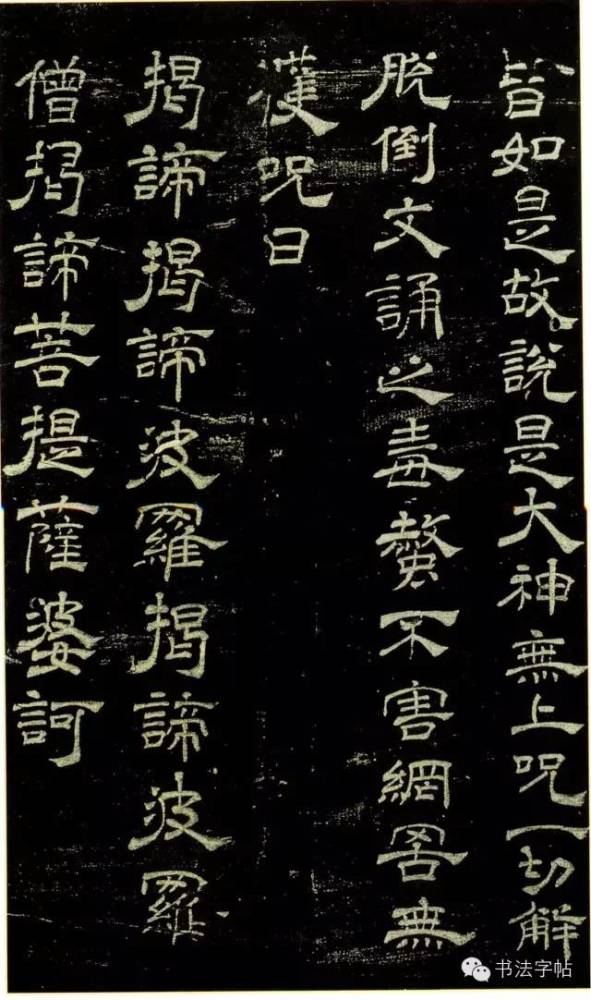 皆如是故說是大神無上呪一切解
脫倒文誦之毒螫不害網罟無
獲呪曰
揭諦揭諦波羅揭諦波羅
僧揭諦菩提薩婆訶
书法字帖